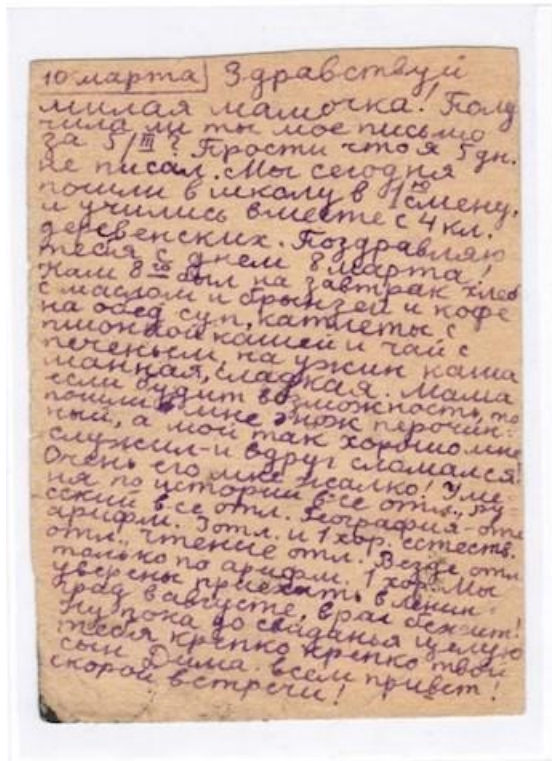 10 марта Здравствуй
милая мамочка! Полу
чила ли ты мое письмо
за 5/III? Прости что я 5 дн.
не писал. Мы сегодня
пошли в школу в 1ую смену,
и учились вместе с 4 кл.
деревенских. Поздравляю
тебя с днем 8 марта!
Нам 8го был на завтрак хлеб
с маслом и брынзей и кофе
на обед суп, катлеты с
пшонной кашей и чай с
печеньем, на ужин каша
манная, сладкая. Мама
если будит возможность, то
пошли мне нож перочин-
ный, а мой так хорошо мне
служил-и вдруг сломался!
Очень его мне жалко! У ме-
ня по истории все отл., ру-
сский все отл. География-отл
арифм. 3 отл. и 1 хор. естеств.
отл., чтение отл. Везде отл
только по арифм. 1 хор. Мы
уверены приехать в Ленин-
град в августе, враг бежит!
Ну пока до свиданья целую
тебя крепко крепко твой
сын Дима. всем привет!
скорой встречи!